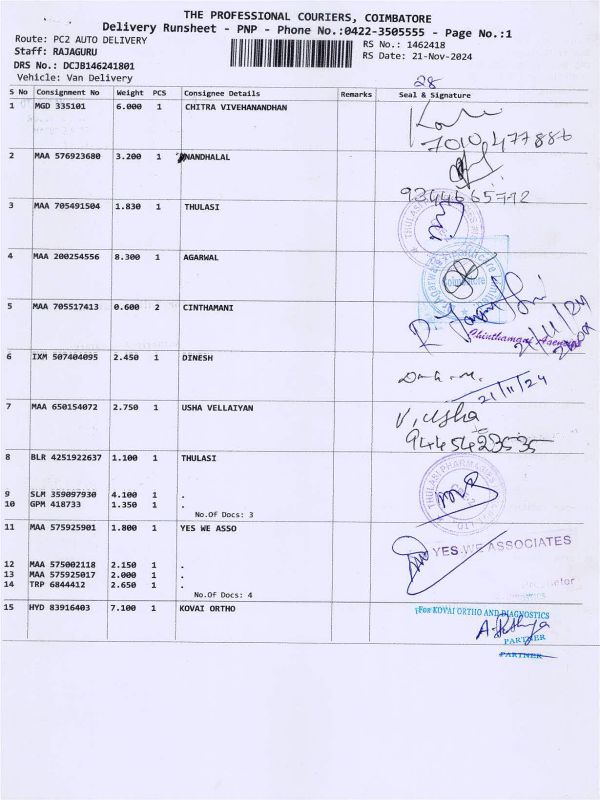 THE PROFESSIONAL COURIERS, COIMBATORE
Delivery Runsheet - PNP - Phone No.:0422-3505555 - Page No.:1
Route: PC2 AUTO DELIVERY
RS No.: 1462418
Staff: RAJAGURU
RS Date: 21-Nov-2024
DRS No.: DCJB146241801
Vehicle: Van Delivery
28
S No Consignment No Weight PCS Consignee Details Remarks Seal & Signature
1 MGD 335101 6.000 1 CHITRA VIVEHANANDHAN
7010 477886
2 MAA 576923680 3.200 1 NANDHALAL
9244665772
3 MAA 705491504 1.830 1 THULASI
4 MAA 200254556 8.300 1 AGARWAL
5 MAA 705517413 0.600 2 CINTHAMANI
Chinthamani Agencies
21/11/24
6 IXM 507404095 2.450 1 DINESH
21/11/24
7 MAA 650154072 2.750 1 USHA VELLAIYAN
V. Usha
9445423535
8 BLR 4251922637 1.100 1 THULASI
THULASI PHARMACIES
9 SLM 359097930 4.100 1 .
10 GPM 418733 1.350 1 .
No.Of Docs: 3
11 MAA 575925901 1.800 1 YES WE ASSO
YES WE ASSOCIATES
12 MAA 575002118 2.150 1 .
13 MAA 575925017 2.000 1 .
14 TRP 6844412 2.650 1 .
No.Of Docs: 4
15 HYD 83916403 7.100 1 KOVAI ORTHO
For KOVAI ORTHO AND DIAGNOSTICS
PARTNER
PARTNER